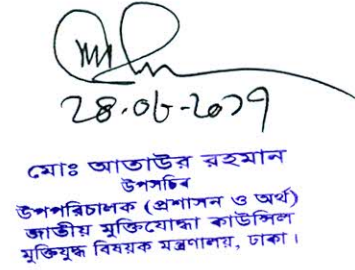 28.06-2017
মোঃ আতাউর রহমান
উপসচিব
উপপরিচালক (প্রশাসন ও অর্থ)
জাতীয় মুক্তিযোদ্ধা কাউন্সিল
মুক্তিযুদ্ধ বিষয়ক মন্ত্রণালয়, ঢাকা।